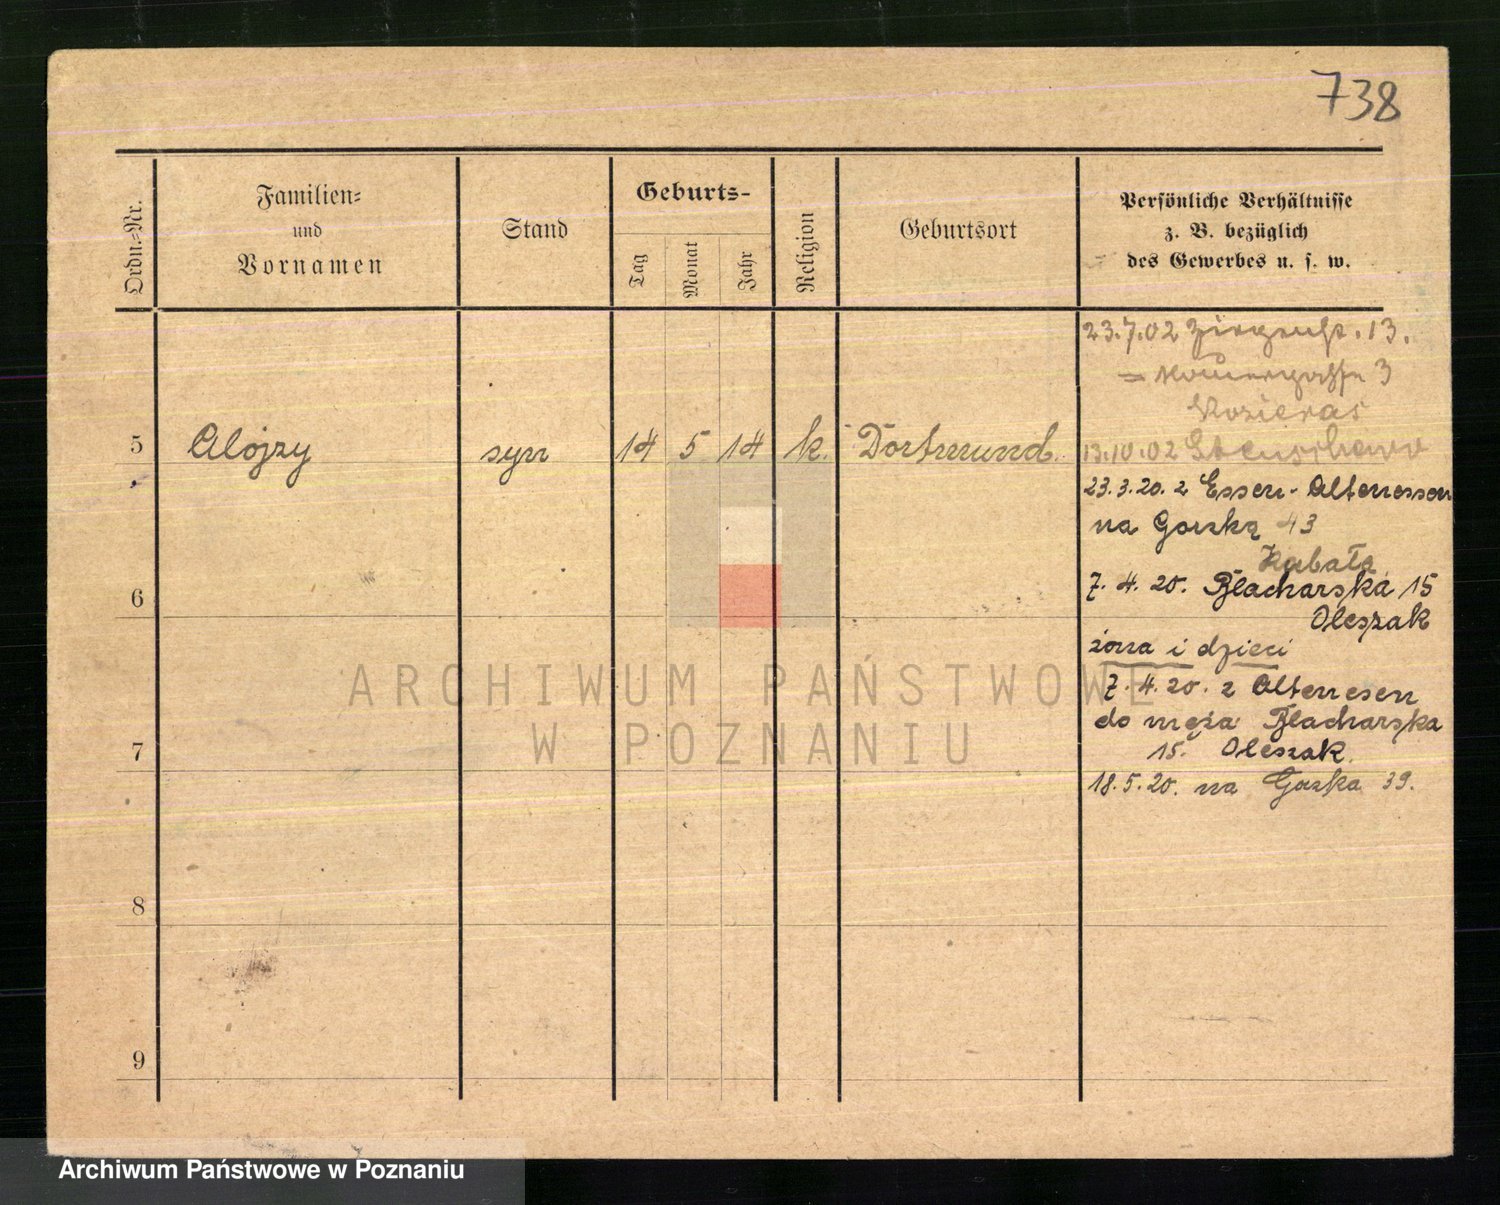 738
Ordn.-Nr.
Familien-
und
Vornamen
Stand
Geburts-
Tag
Monat
Jahr
Religion
Geburtsort
Persönliche Verhältnisse
z. B. bezüglich
des Gewerbes u. s. w.
23.7.02 13.
3
13.10.02
5 Alojzy syn 14 5 14 k. Dortmund.
23.3.20. z Essen-Altenessen
na Gorską 43
Kabała
7. 4. 20. Blacharska 15
Oleszak
żona i dzieci
7. 4. 20. z Altenesen
do męża Blacharska
15. Oleszak.
18.5.20. na 39.
6
7
8
9
ARCHIWUM PAŃSTWOWE
W POZNANIU
Archiwum Państwowe w Poznaniu